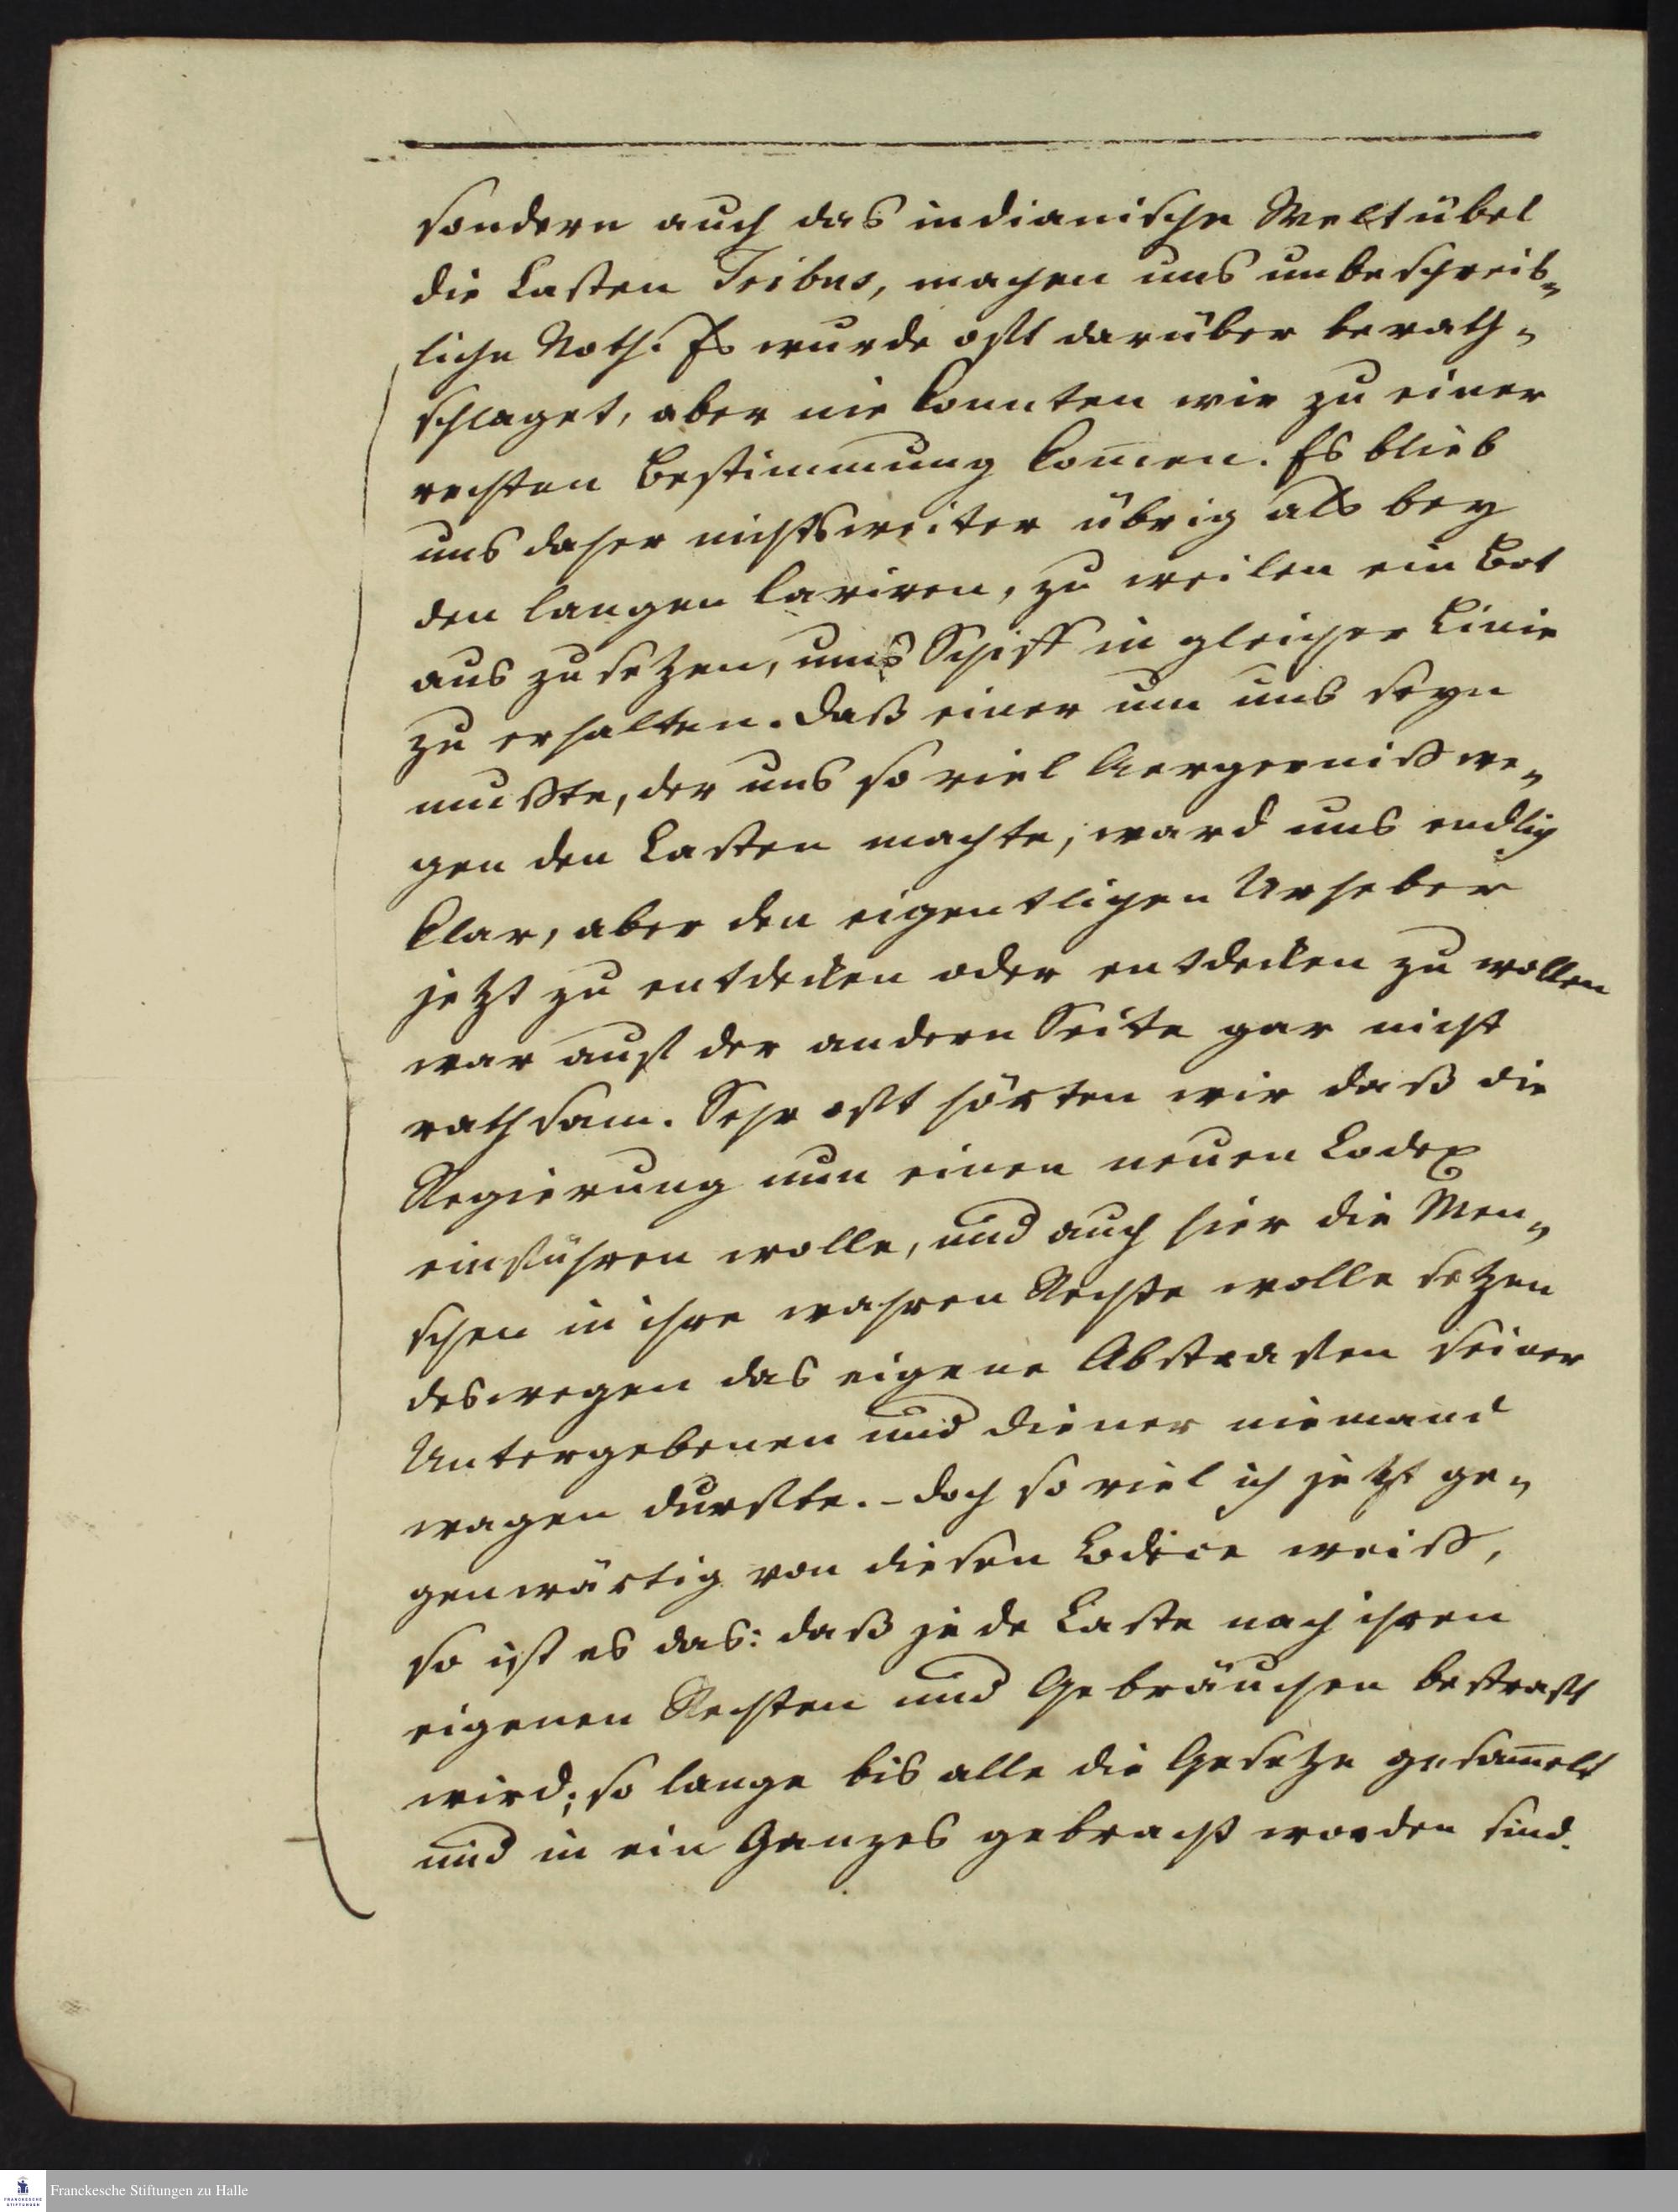 sondern auch das indianische Weltübel
die Casten Tribus, machen uns unbeschreib-
liche Noth. Es wurde oft darüber berath-
schlaget, aber nie konnten wir zu einer
rechten Bestimmung kom̅en. Es blieb
uns daher nichtsweiter übrig als bey
den langen laviren, zu weilen ein Bot
aus zu setzen, ums Schiff in gleicher Linie
zu erhalten. Daß einer um uns seyn
mußte, der uns so viel Aergerniß we-
gen den Casten machte, ward uns endlich
klar, aber den eigentlichen Urheber
jetzt zu entdecken oder entdecken zu wollen
war auf der andern Seite gar nicht
rathsam. Sehr oft hörten wir daß die
Regierung nun einen neuen Codex
einführen wolle, und auch hier die Men-
schen in ihre wahren Rechte wolle setzen
deswegen das eigene Abstrafen seiner
Untergebenen und Diener niemand
wagen durfte. – Doch so viel ich jetzt ge-
genwärtig von diesen Codice weiß,
so ist es das: daß jede Caste nach ihren
eigenen Rechten und Gebräuchen bestraft
wird; so lange bis alle die Gesetze gesam̅elt
und in ein Ganzes gebracht worden sind.
Franckesche Stiftungen zu Halle
FRANCKESCHE
STIFTUNGEN